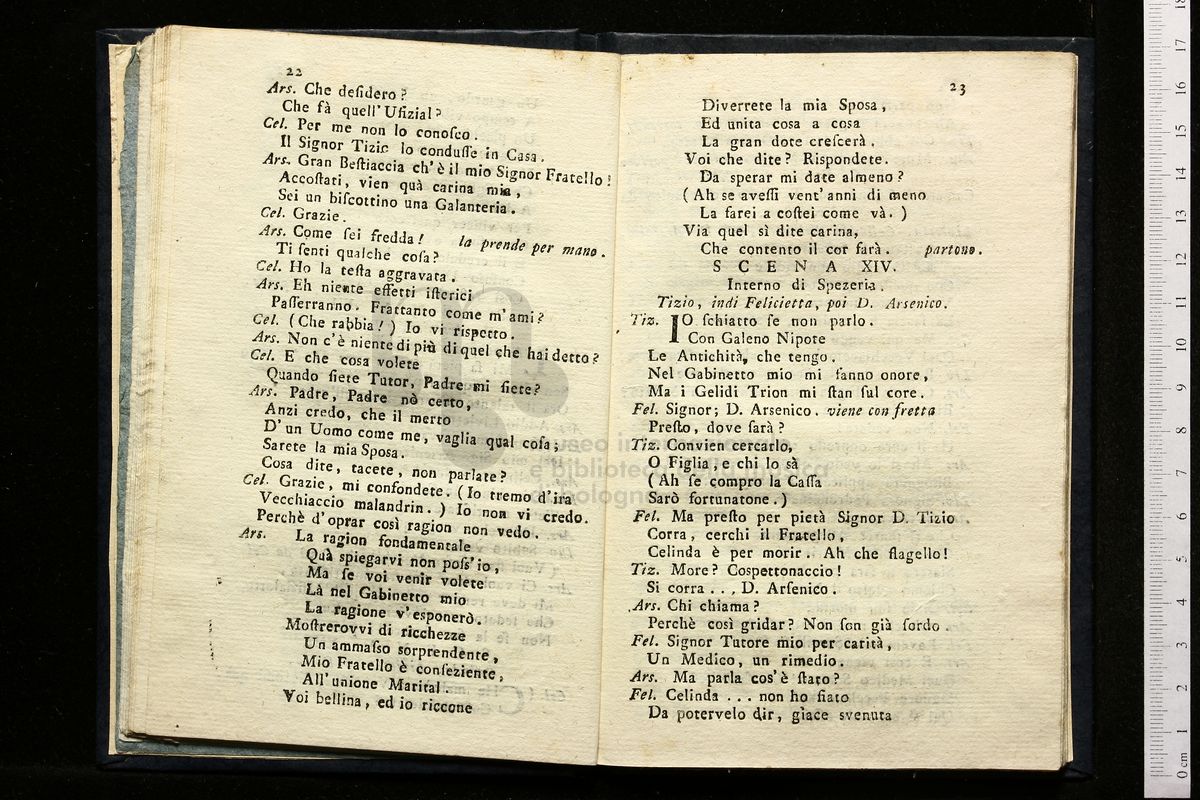 22
Ars. Che deſidero?
Che fà quell' Ufizial?
Cel. Per me non lo conoſco.
Il Signor Tizio lo conduſſe in Caſa.
Ars. Gran Beſtiaccia ch'è il mio Signor Fratello!
Accoſtati, vien quà carina mia,
Sei un biſcottino una Galanteria.
Cel. Grazie.
Ars. Come ſei fredda! la prende per mano.
Ti ſenti qualche coſa?
Cel. Ho la teſta aggravata.
Ars. Eh niente effetti iſterici
Paſſerranno. Frattanto come m'ami?
Cel. (Che rabbia!) Io vi riſpetto.
Ars. Non c'è niente di più di quel che hai detto?
Cel. E che cosa volete
Quando ſiete Tutor, Padre mi ſiete?
Ars. Padre, Padre nò certo,
Anzi credo, che il merto
D'un Uomo come me, vaglia qual coſa;
Sarete la mia Sposa.
Cosa dite, tacete, non parlate?
Cel. Grazie, mi confondete. (Io tremo d'ira
Vecchiaccio malandrin.) Io non vi credo.
Perchè d'oprar così ragion non vedo.
Ars. La ragion fondamentale
Quà spiegarvi non poſs'io,
Ma ſe voi venir volete
Là nel Gabinetto mio
La ragione v'esponerò.
Moſtrerovvi di ricchezze
Un ammaſso sorprendente,
Mio Fratello è conſeziente,
All'unione Marital.
Voi bellina, ed io riccone
23
Diverrete la mia Sposa,
Ed unita cosa a cosa
La gran dote creſcerà.
Voi che dite? Rispondete.
Da sperar mi date almeno?
(Ah se aveſſi vent' anni di meno
La farei a coſtei come và.)
Via quel sì dite carina,
Che contento il cor farà. partono.
SCENA XIV.
Interno di Spezeria.
Tizio, indi Felicietta, poi D. Arsenico.
Tiz. IO ſchiatto ſe non parlo.
Con Galeno Nipote
Le Antichità, che tengo.
Nel Gabinetto mio mi fanno onore,
Ma i Gelidi Trion mi ſtan ſul core.
Fel. Signor; D. Arsenico. viene con fretta
Preſto, dove ſarà?
Tiz. Convien cercarlo,
O Figlia, e chi lo sà
(Ah ſe compro la Caſſa
Sarò fortunatone.)
Fel. Ma preſto per pietà Signor D. Tizio.
Corra, cerchi il Fratello,
Celinda è per morir.. Ah che flagello!
Tiz. More? Coſpettonaccio!
Si corra... D. Arſenico.
Ars. Chi chiama?
Perchè così gridar? Non ſon già ſordo.
Fel. Signor Tutore mio per carità,
Un Medico, un rimedio.
Ars. Ma parla cos'è ſtato?
Fel. Celinda... non ho fiato
Da potervelo dir, giace svenuta